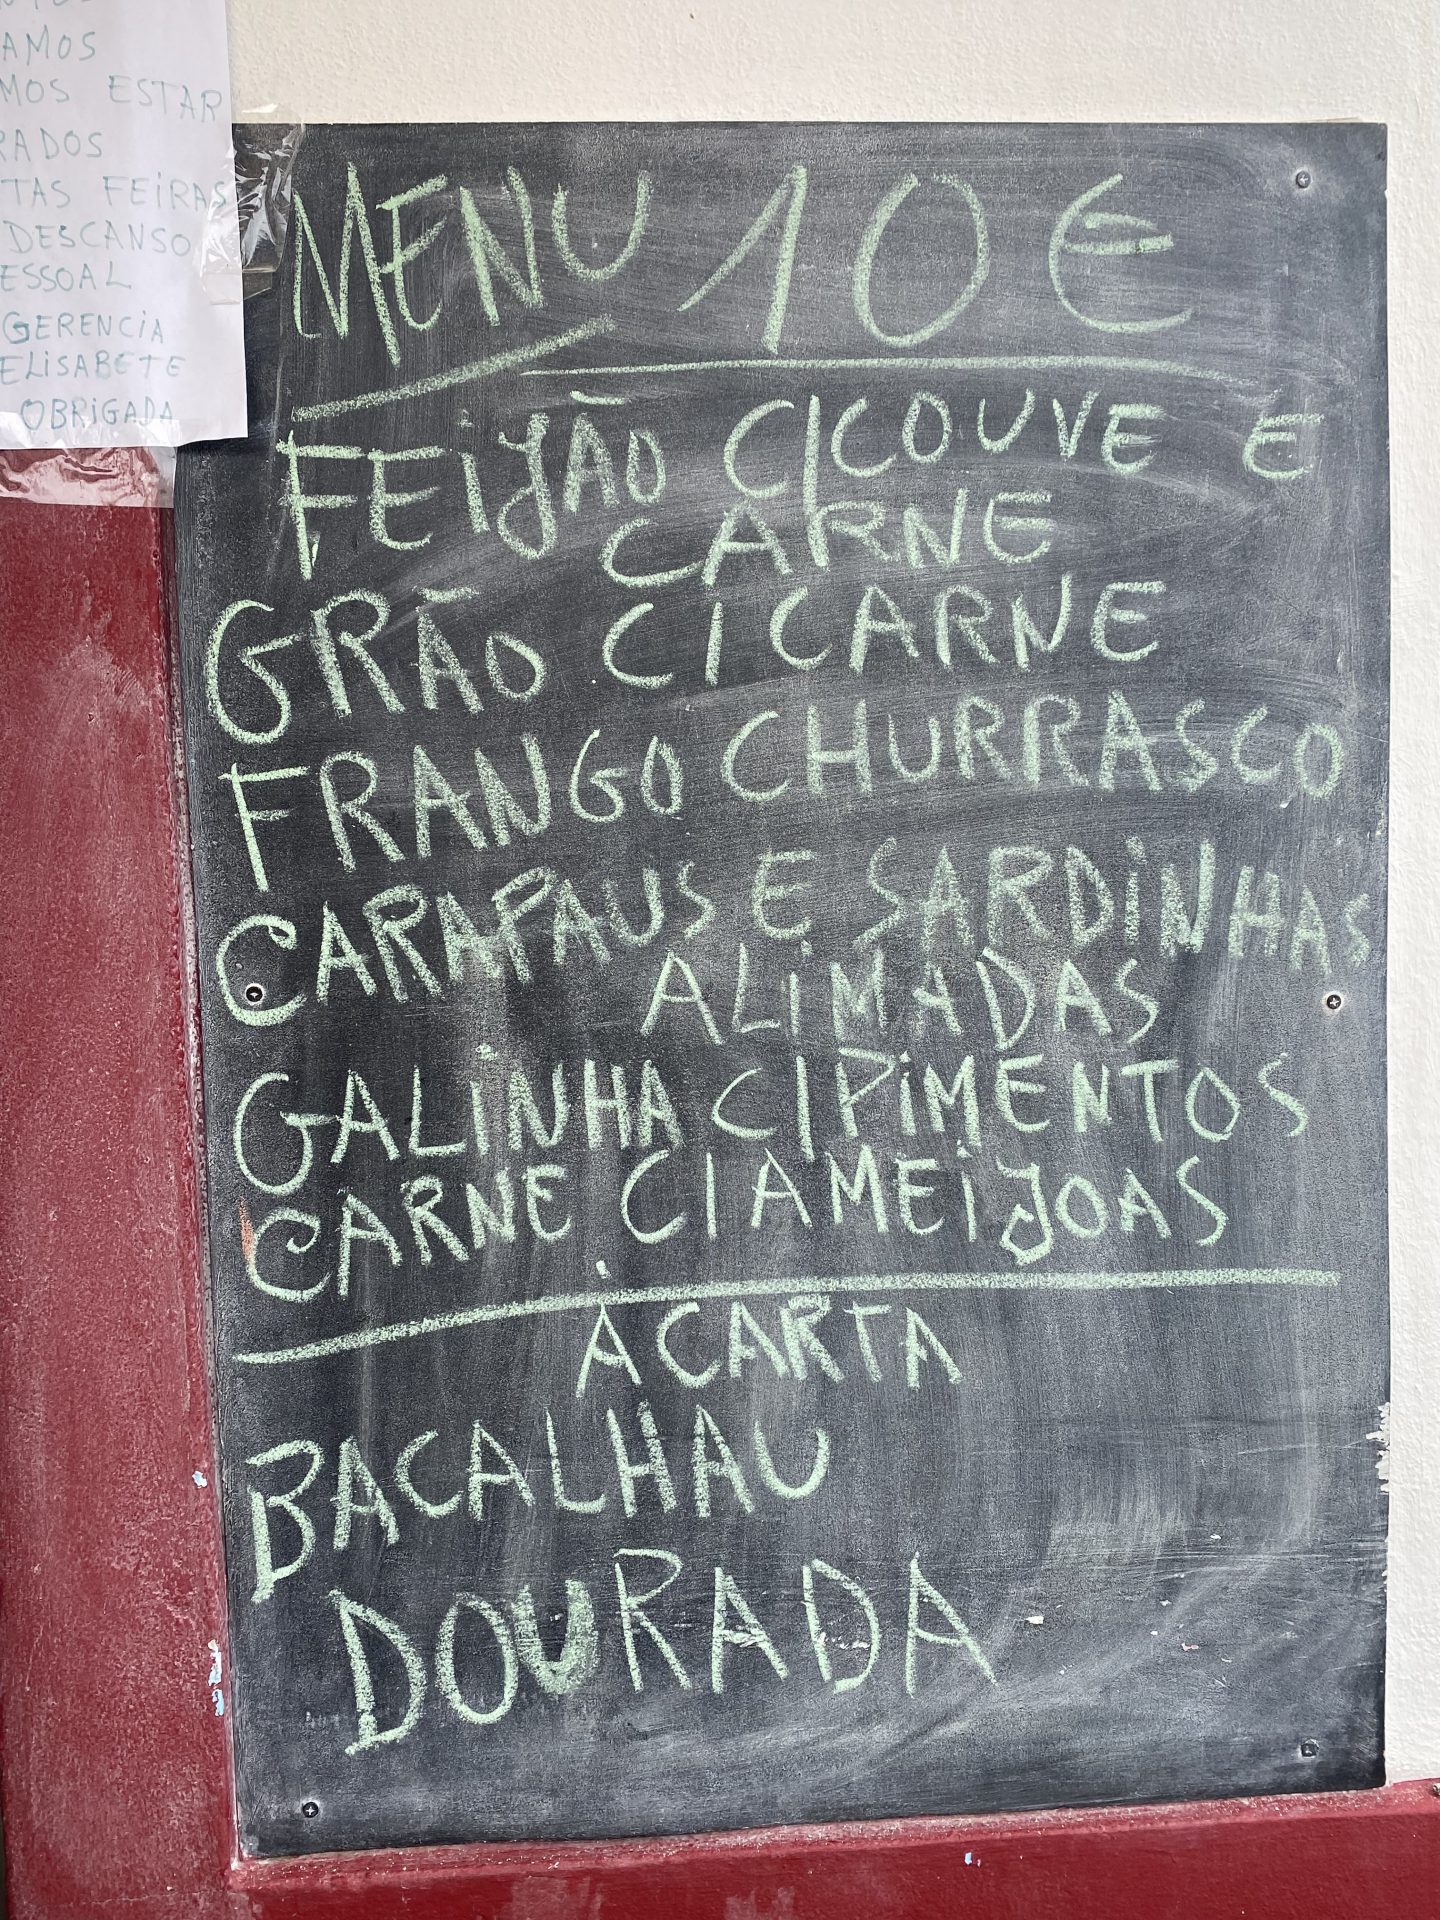 AMOS
MOS ESTAR
RADOS
TAS FEIRAS
DESCANSO
ESSOAL
GERENCIA
ELISABETE
OBRIGADA
MENU 10€
FEIJÃO C/COUVE E
CARNE
GRÃO C/CARNE
FRANGO CHURRASCO
CARAPAUS E SARDINHAS
ALIMADAS
GALINHA C/PIMENTOS
CARNE C/AMEIJOAS
À CARTA
BACALHAU
DOURADA